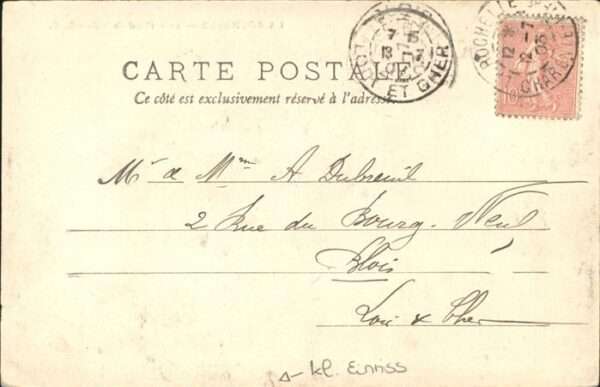 BLOIS
7 15
13 -7
05
LOIR ET CHER
ROCHELLE
12
12 -7
05
CHARENTE
10
CARTE POSTALE
Ce côté est exclusivement réservé à l'adresse.
Mr & Mme A Dubreuil
2 Rue du Bourg-Neuf
Blois
Loir & Cher
kl. Einriss